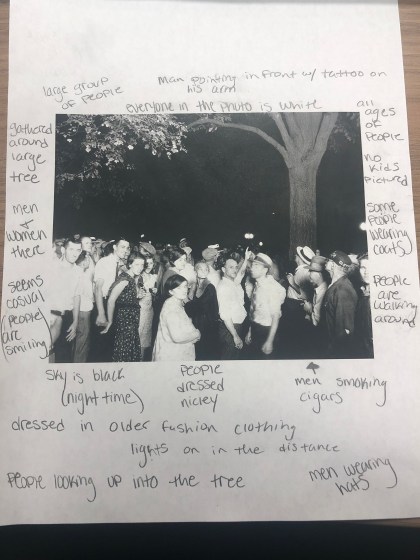 large group
of people
man pointing in front w/ tattoo on
his arm
everyone in the photo is white
all
ages
of
people
gathered
around
large
tree
no
kids
pictured
men
+
women
there
some
people
wearing
coats
seems
casual
(people)
are
smiling
people
are
walking
around
sky is black
(night time)
people
dressed
nicley
men smoking
cigars
dressed in older fashion clothing
lights on in the distance
people looking up into the tree
men wearing
hats